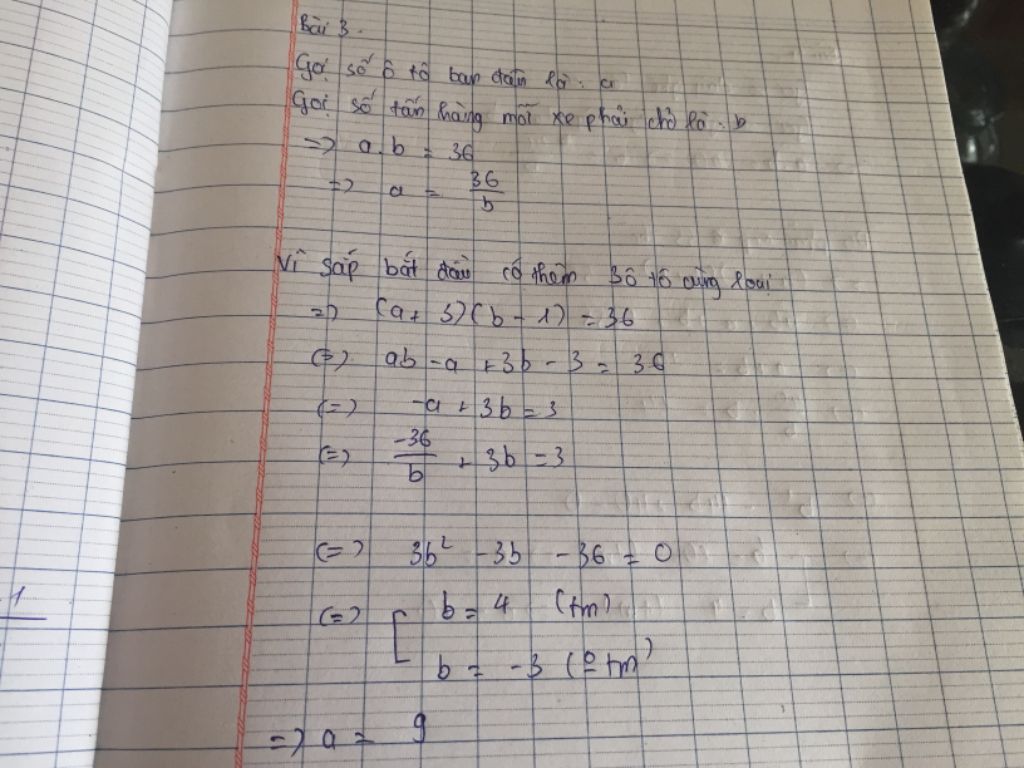 Bài 3.
Gọi số ô tô ban đầu là: a
Gọi số tấn hàng mỗi xe phải chở là: b
=> a.b = 36
=> a = 36/b
Vì sắp bắt đầu có thêm 3 ô tô cùng loại
=> (a + 3)(b - 1) = 36
(=) ab - a + 3b - 3 = 36
(=) -a + 3b = 3
(=) -36/b + 3b = 3
(=) 3b² - 3b - 36 = 0
(=) [ b = 4 (tm)
b = -3 (o tm)
=> a = 9
1